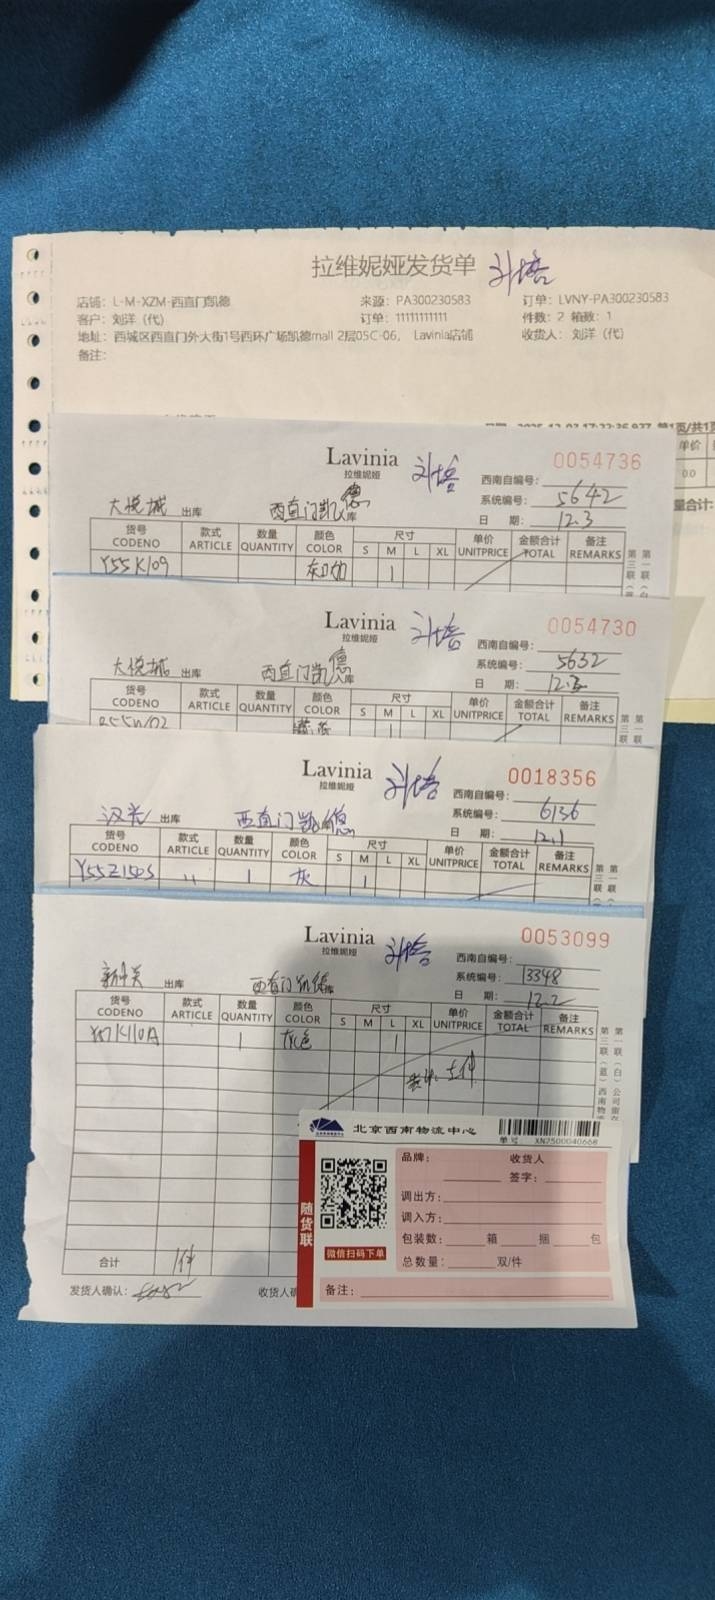 拉维妮娅发货单 刘培
店铺：L-M-XZM-西直门凯德 来源：PA300230583 订单：LVNY-PA300230583
客户：刘洋（代） 订单：11111111111 件数：2 箱数：1
地址：西城区西直门外大街1号西环广场凯德mall 2层05C-06， Lavinia店铺 收货人：刘洋（代）
备注：
第1页/共1页
单价
00
量合计：
Lavinia 刘培 0054736
拉维妮娅 西南自编号：
系统编号：5642
大悦城 出库 西直门凯德 入库 日 期：12.3
货号 款式 数量 颜色 尺寸 单价 金额合计 备注
CODENO ARTICLE QUANTITY COLOR S M L XL UNITPRICE TOTAL REMARKS
Y55K109 1
Lavinia 刘培 0054730
拉维妮娅 西南自编号：
系统编号：5632
大悦城 出库 西直门凯德 入库 日 期：12.3
货号 款式 数量 颜色 尺寸 单价 金额合计 备注
CODENO ARTICLE QUANTITY COLOR S M L XL UNITPRICE TOTAL REMARKS
Lavinia 刘培 0018356
拉维妮娅 西南自编号：
系统编号：6136
汉光 出库 西直门凯德 日 期：12.1
货号 款式 数量 颜色 尺寸 单价 金额合计 备注
CODENO ARTICLE QUANTITY COLOR S M L XL UNITPRICE TOTAL REMARKS
Y55Z150S 1 灰 1
Lavinia 刘培 0053099
拉维妮娅 西南自编号：
系统编号：13348
新中关 出库 西直门凯德库 日 期：12.2
货号 款式 数量 颜色 尺寸 单价 金额合计 备注
CODENO ARTICLE QUANTITY COLOR S M L XL UNITPRICE TOTAL REMARKS
1 灰色 1
第一联（白）公司留存
第三联（蓝）西南物流
北京西南物流中心
单号： XN7500040668
品牌： 收货人
签字：
调出方：
调入方：
包装数： 箱 捆 包
总数量： 双/件
备注：
随货联
微信扫码下单
合计 1件
发货人确认：
收货人确